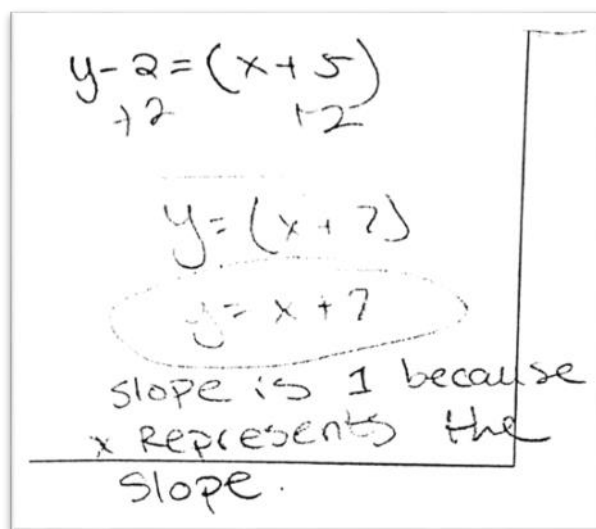 y-2=(x+5)
+2 +2
y=(x+7)
y=x+7
slope is 1 because
x represents the
slope.